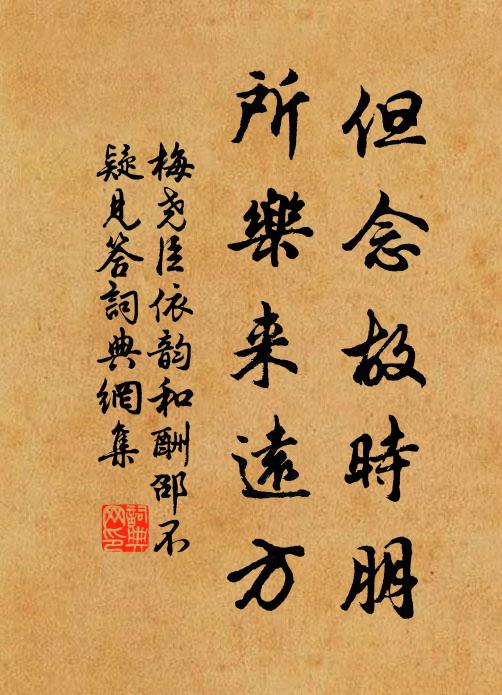 但念故時朋
所樂来遠方
梅堯臣依韵和酬邵不
疑見答詞典網集
詞典网印